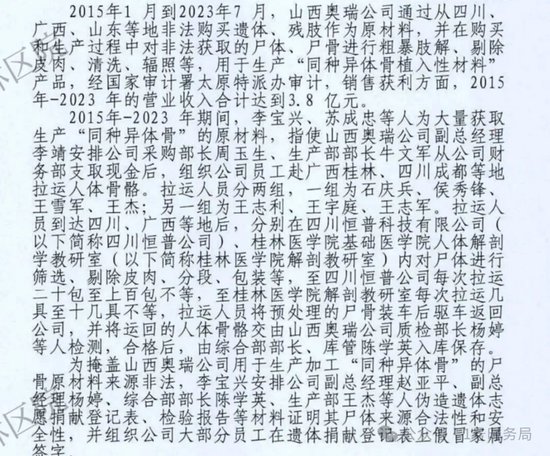 2015年1月到2023年7月，山西奥瑞公司通过从四川、
广西、山东等地非法购买遗体、残肢作为原材料，并在购买
和生产过程中对非法获取的尸体、尸骨进行粗暴肢解、剔除
皮肉、清洗、辐照等，用于生产“同种异体骨植入性材料”
产品，经国家审计署太原特派办审计，销售获利方面，2015
年-2023 年的营业收入合计达到3.8 亿元。
2015年-2023 年期间，李宝兴、苏成忠等人为大量获取
生产“同种异体骨”的原材料，指使山西奥瑞公司副总经理
李靖安排公司采购部长周玉生、生产部部长牛文军从公司财
务部支取现金后，组织公司员工赴广西桂林、四川成都等地
拉运人体骨骼。拉运人员分两组，一组为石庆兵、侯秀锋、
王雪军、王杰；另一组为王志利、王宇庭、王志军。拉运人
员到达四川、广西等地后，分别在四川恒普科技有限公司（
以下简称四川恒普公司）、桂林医学院基础医学院人体解剖
学教研室（以下简称桂林医学院解剖教研室）内对尸体进行
筛选、剔除皮肉、分段、包装等，至四川恒普公司每次拉运
二十包至上百包不等，至桂林医学院解剖教研室每次拉运几
具至十几具不等，拉运人员将预处理的尸骨装车后驱车返回
公司，并将运回的人体骨骼交由山西奥瑞公司质检部长杨婷
等人检测，合格后，由综合部部长、库管陈学英入库保存。
为掩盖山西奥瑞公司用于生产加工“同种异体骨”的尸
骨原材料来源非法，李宝兴安排公司副总经理赵亚平、副总
经理杨婷、综合部部长陈学英、生产部王杰等人伪造遗体志
愿捐献登记表、检验报告等材料证明其尸体来源合法性和安
全性，并组织公司大部分员工在遗体捐献登记表上假冒家属
签字。
林区院